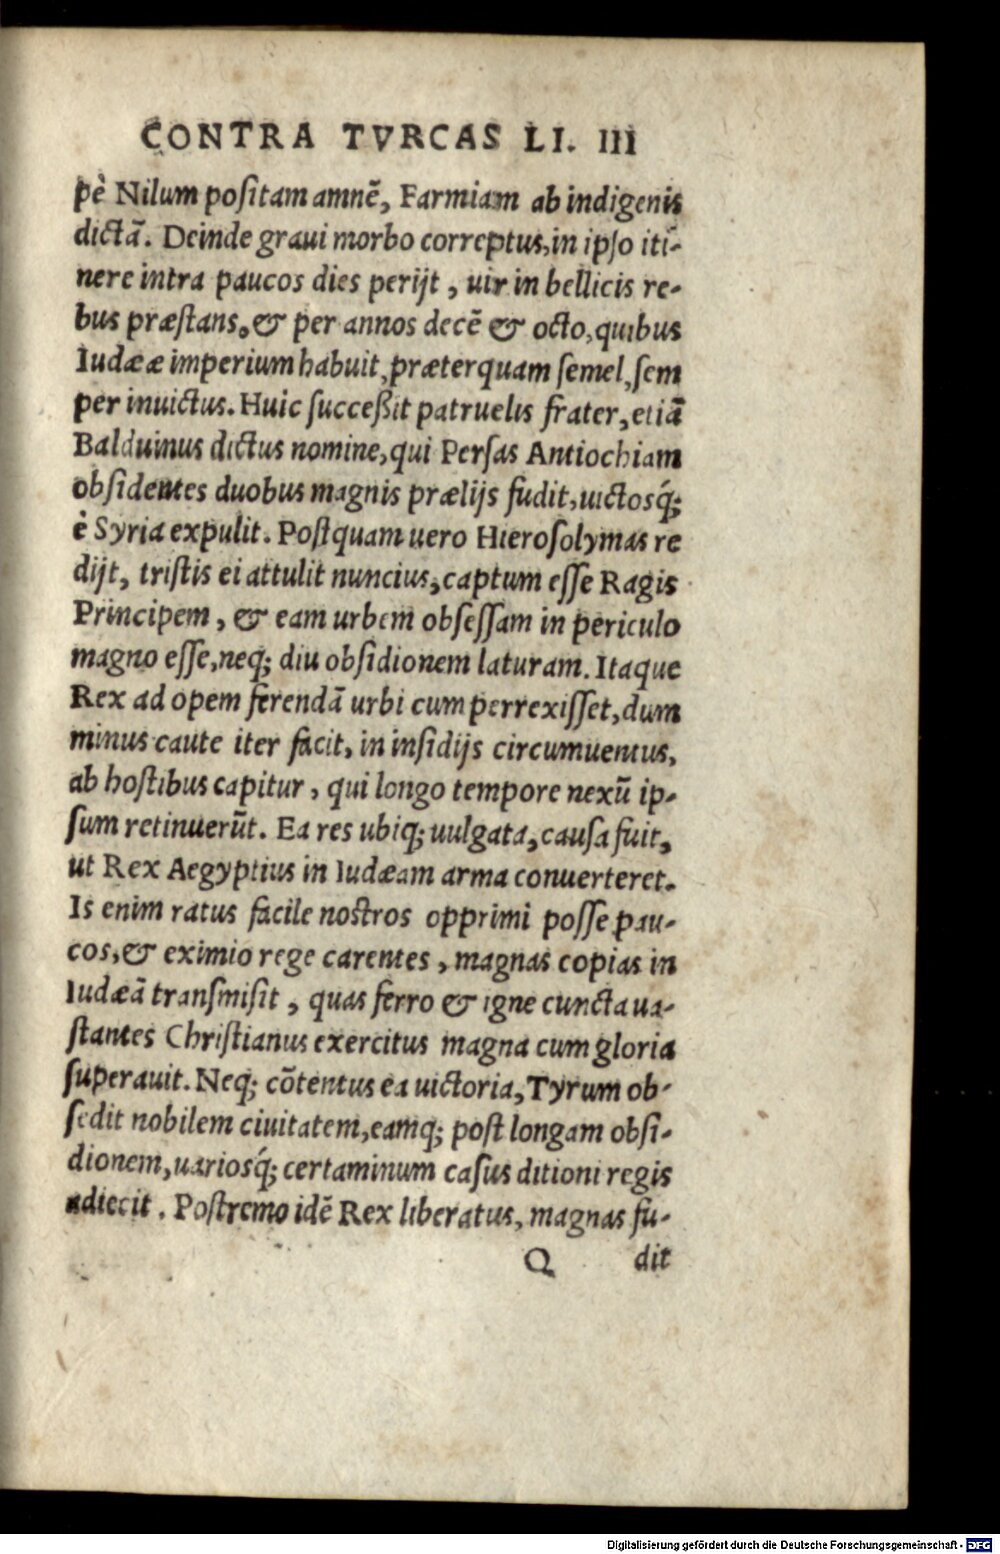 CONTRA TVRCAS LI. III
pè Nilum poſitam amnē, Farmiam ab indigenis
dictā. Deinde graui morbo correptus, in ipſo iti-
nere intra paucos dies perijt, uir in bellicis re-
bus præſtans, & per annos decē & octo, quibus
Iudææ imperium habuit, præterquam ſemel, ſem
per inuictus. Huic ſucceßit patruelis frater, etiā
Balduinus dictus nomine, qui Perſas Antiochiam
obſidentes duobus magnis prælijs fudit, uictosq́;
è Syria expulit. Poſtquam uero Hieroſolymas re
dijt, triſtis ei attulit nuncius, captum eſſe Ragis
Principem, & eam urbem obſeſſam in periculo
magno eſſe, neq; diu obſidionem laturam. Itaque
Rex ad opem ferendā urbi cum perrexiſſet, dum
minus caute iter facit, in inſidijs circumuentus,
ab hoſtibus capitur, qui longo tempore nexū ip-
ſum retinuerūt. Ea res ubiq; uulgata, cauſa fuit,
ut Rex Aegyptius in Iudæam arma conuerteret.
Is enim ratus facile noſtros opprimi poſſe pau-
cos, & eximio rege carentes, magnas copias in
Iudæā tranſmiſit, quas ferro & igne cuncta ua-
ſtantes Chriſtianus exercitus magna cum gloria
ſuperauit. Neq; cōtentus ea uictoria, Tyrum ob-
ſedit nobilem ciuitatem, eamq; poſt longam obſi-
dionem, uariosq́; certaminum caſus ditioni regis
adiecit. Poſtremo idē Rex liberatus, magnas fu-
Q dit
Digitalisierung gefördert durch die Deutsche Forschungsgemeinschaft - DFG